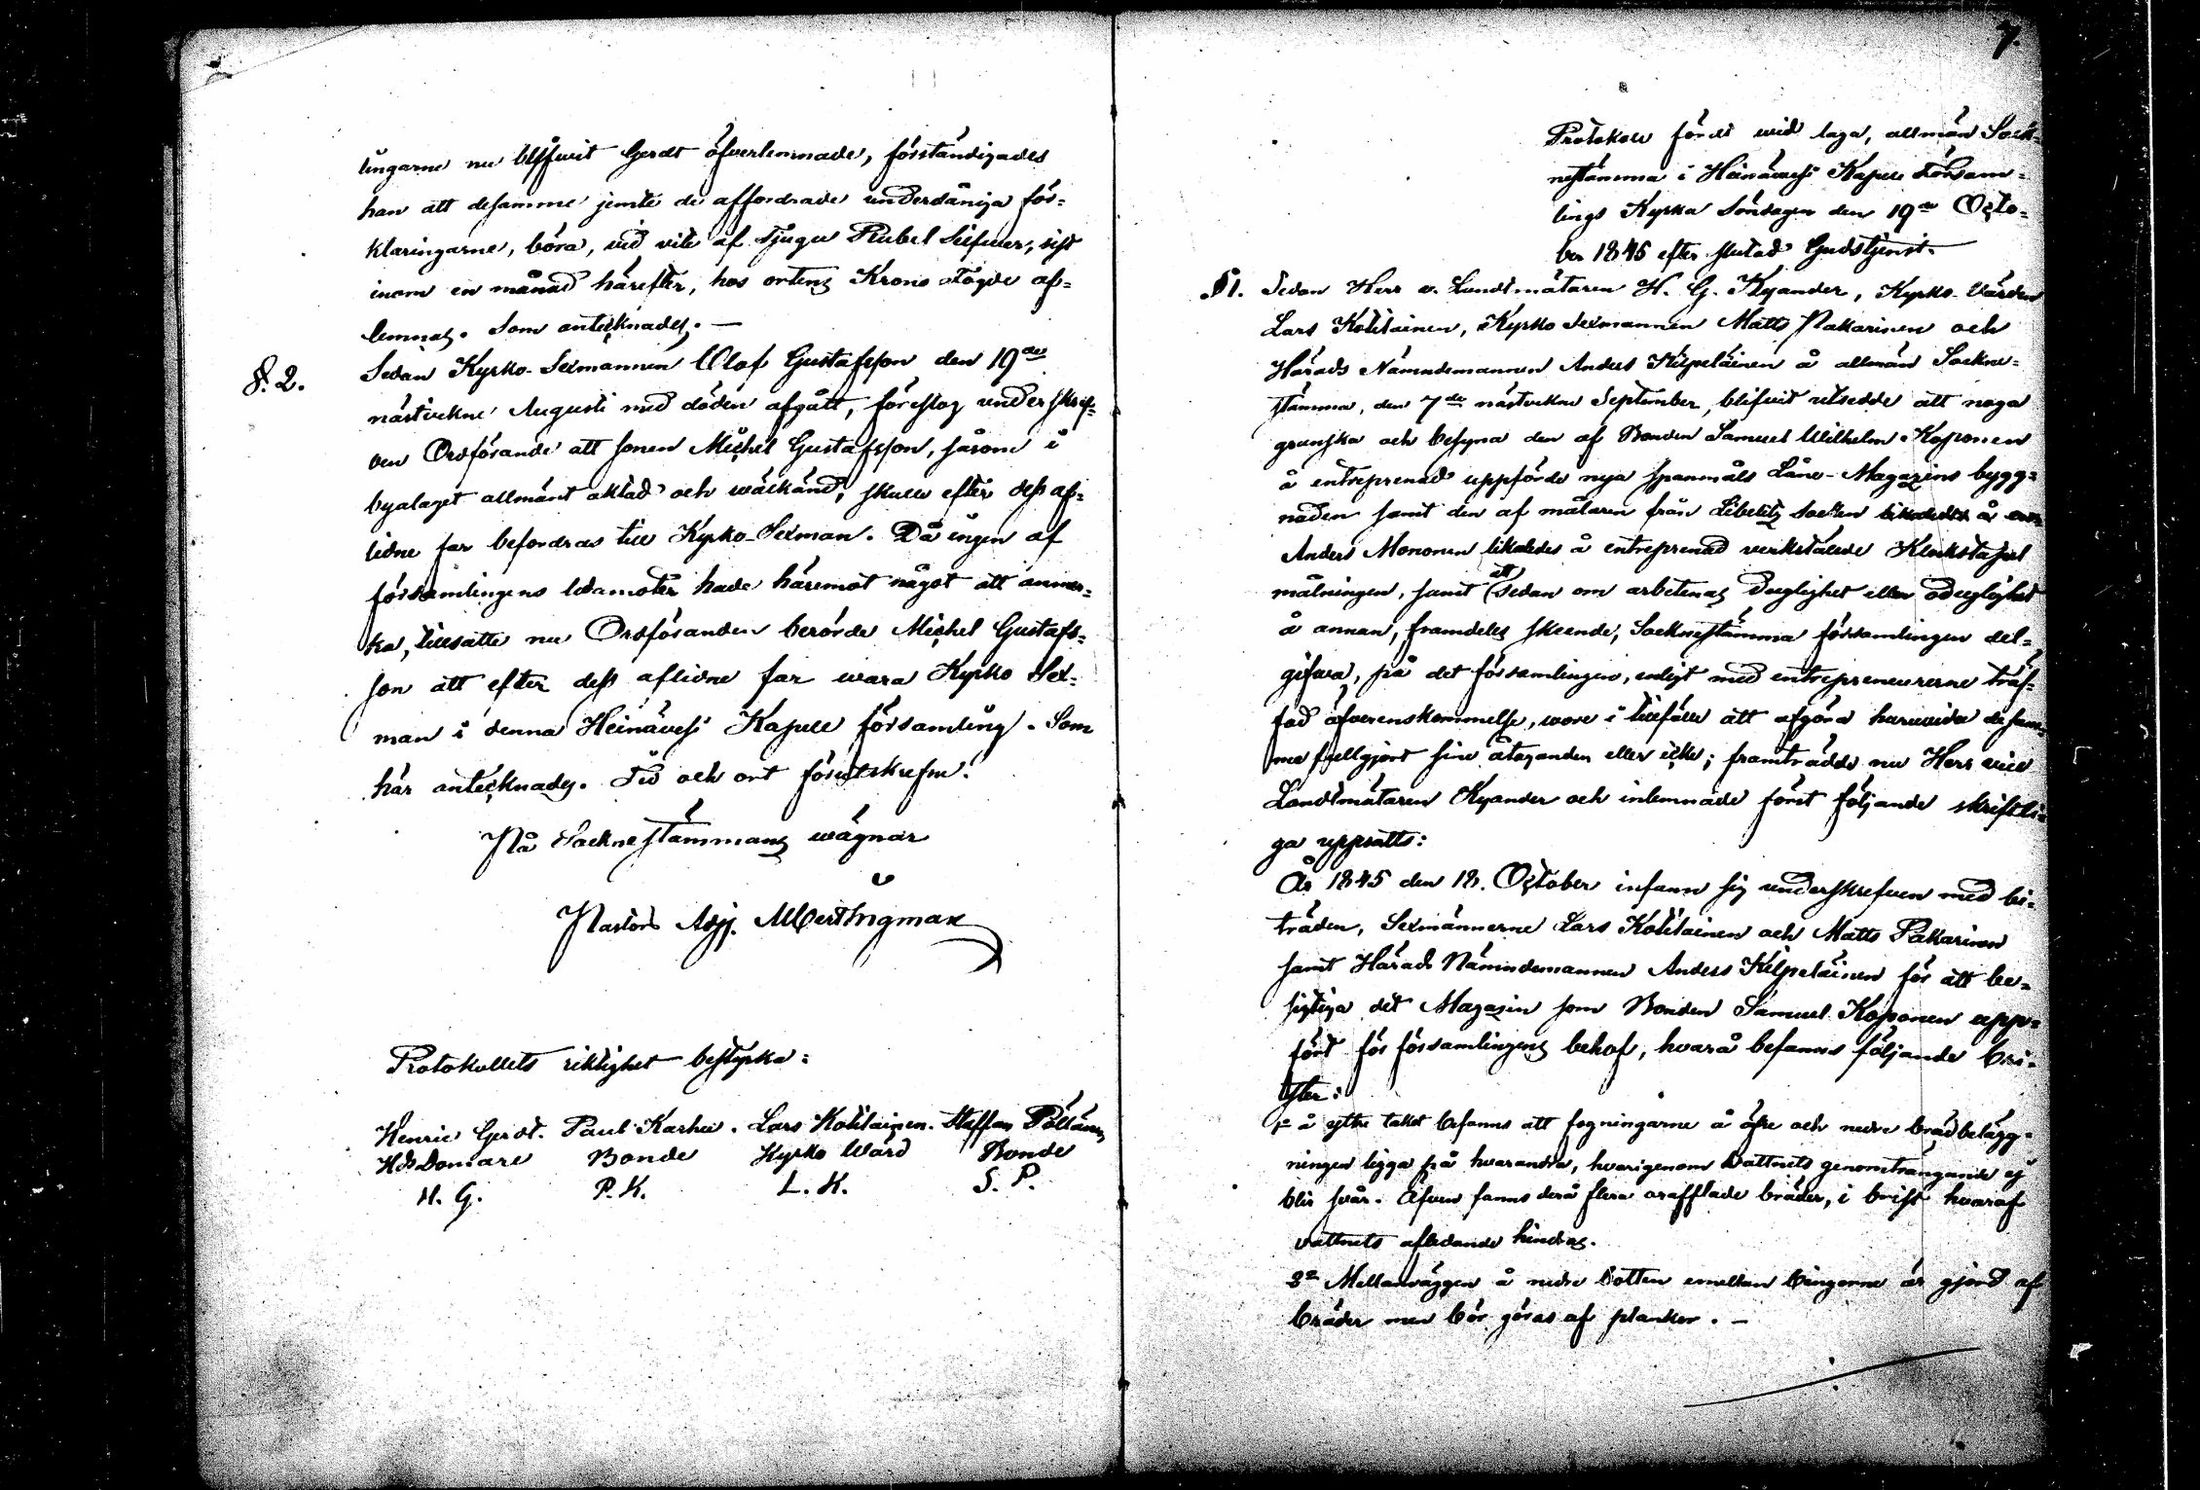 lingarne nu blifvit Gerdt öfverlemnade, förständigades
han att desamme jemte de affordrade underdåniga för-
klaringarne, böra, vid vite af tjugu Rubel Silfver, sist
inom en månad härefter, hos ortens Krono Fogde af-
lemnas. Som antecknades. —
§. 2. Sedan Kyrko-Sexmannen Olof Gustafsson den 19de
nästvekne Augusti med döden afgått, föreslog underskrif-
ven Ordförande att sonen Michel Gustafsson, såsom i
byalaget allmänt aktad och wälkänd, skulle efter dess af-
lidne far befordras till Kyrko-Sexman. Då ingen af
församlingens ledamöter hade häremot något att anmär-
ka, tillsatte nu Ordföranden berörde Michel Gustafs-
son att efter dess aflidne far wara Kyrko Sex-
man i denna Heinävesi Kapell församling. Som
här antecknades. Tid och ort förutskrefne.
På Sockne stämmans wägnar
Pastors Adj. Albert Ingman
Protokollets riktighet bestyrka:
Henric Gerdt. Paul Karhu. Lars Kotilainen. Staffan Pöllänen
Hds Domare Bonde Kyrko Wärd Bonde
H. G. P. K. L. K. S. P.
7.
Protokoll fördt wid laga, allmän Sock-
nestämma i Heinävesi Kapell Försam-
lings Kyrka Söndagen den 19de Octo-
ber 1845 efter slutad Gudstjenst.
§1. Sedan Herr v. Landtmätaren H. G. Kyander, Kyrko-Värden
Lars Kotilainen, Kyrko Sexmannen Matts Pakarinen och
Härads Nämndemannen Anders Kilpeläinen å allmän Sockne-
stämma, den 7de nästvekne September, blifvit utsedde att noga
granska och besyna den af Bonden Samuel Wilhelm Koponen
å entreprenad uppförde nya spannmåls Låne-Magazins bygg-
naden samt den af målaren från Libelits Socken
Anders Mononen likaledes å entreprenad verkstälde Klockstapel
målningen, samt att sedan om arbetenas duglighet eller oduglighet
å annan, framdeles skeende, Socknestämma församlingen del-
gifva, på det församlingen, enligt med entrepreneurerne träf-
fad öfverenskommelse, wore i tillfälle att afgöra huruvida desam-
me fullgjort sine åtaganden eller icke; framträdde nu Herr vice
Landtmätaren Kyander och inlemnade först följande skriftli-
ga uppsatts:
År 1845 den 18. October infann sig underskrefven med bi-
träden, Sexmännerne Lars Kotilainen och Matts Pakarinen
samt Härads Nämndemannen Anders Kilpeläinen för att be-
sigtiga det Magazin som Bonden Samuel Koponen upp-
fört för församlingens behof, hvarå befanns följande bri-
ster:
1o å yttre taket befanns att fogningarne å öfre och nedre brädbelägg-
ningen ligga på hvarandra, hvarigenom vattnets genomträngande ej
blir svår. Äfven fanns derå flera orafflade bräder, i brist hvaraf
vattnets afledande hindras.
2o Mellanväggen å nedre botten emellan bingarne är gjord af
bräder men bör göras af plankor. —